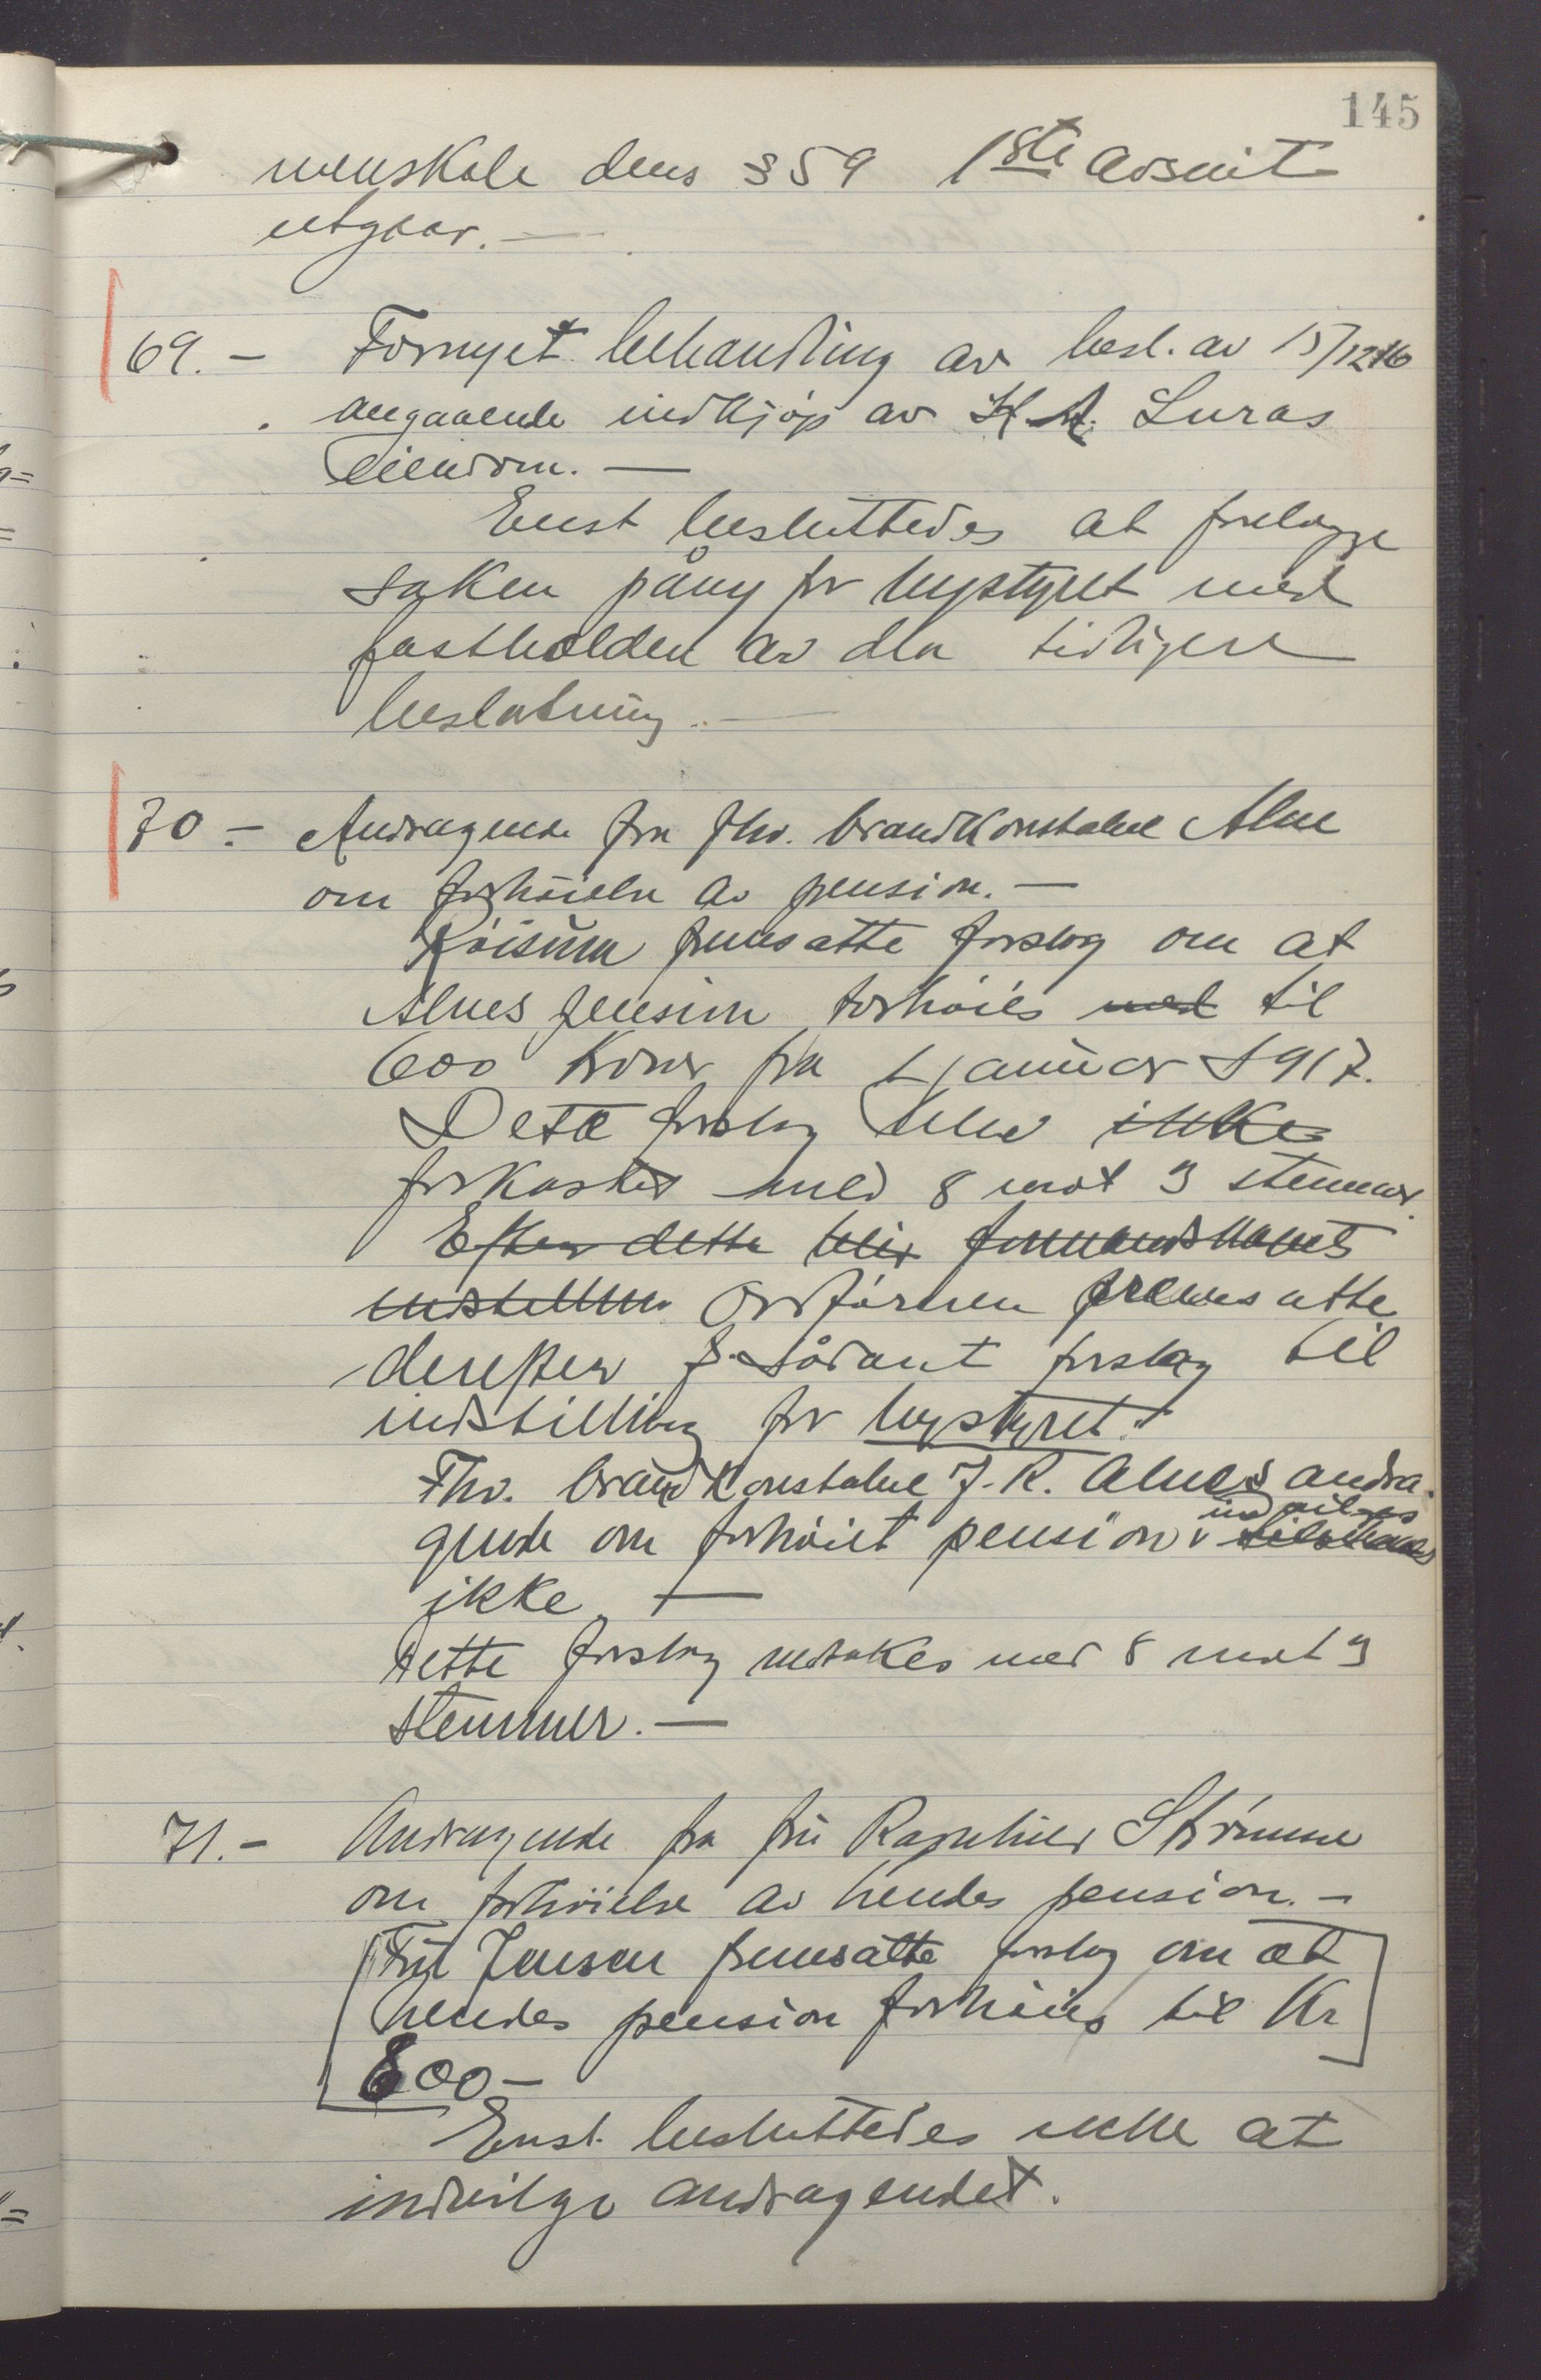 145
menskole dens § 59 1ste avsnit
utgaar. —
69. — Fornyet behandling av besl. av 15/12 16
angaaende indkjøp av K. A. Luras
eiendom. —
Enst besluttedes at forelægge
saken påny for bystyret med
fastholden av den tidligere
beslutning. —
70 — Andragende fra fhv. brandkonstabel Alne
om forhøielse av pension. —
Röisum fremsatte forslag om at
Alnes pension forhøies med til
600 kroner fra 1 januar 1917.
Dette forslag blev ikke
forkastet med 8 mot 3 stemmer.
Efter dette blir formandskapets
indstilling Ordføreren fremsatte
derefter sådant forslag til
indstilling for bystyret:
Fhv. brandkonstabel J. K. Alnes andra-
gende om forhøiet pension indvilges
ikke. —
Dette forslag vedtakes med 8 mot 3
stemmer. —
71. — Andragende fra fru Ragnhild Strømme
om forhøielse av hendes pension. —
Fru Jensen fremsatte forslag om at
hendes pension forhøies til Kr
800 —
Enst. besluttedes ikke at
indvilge andragendet.